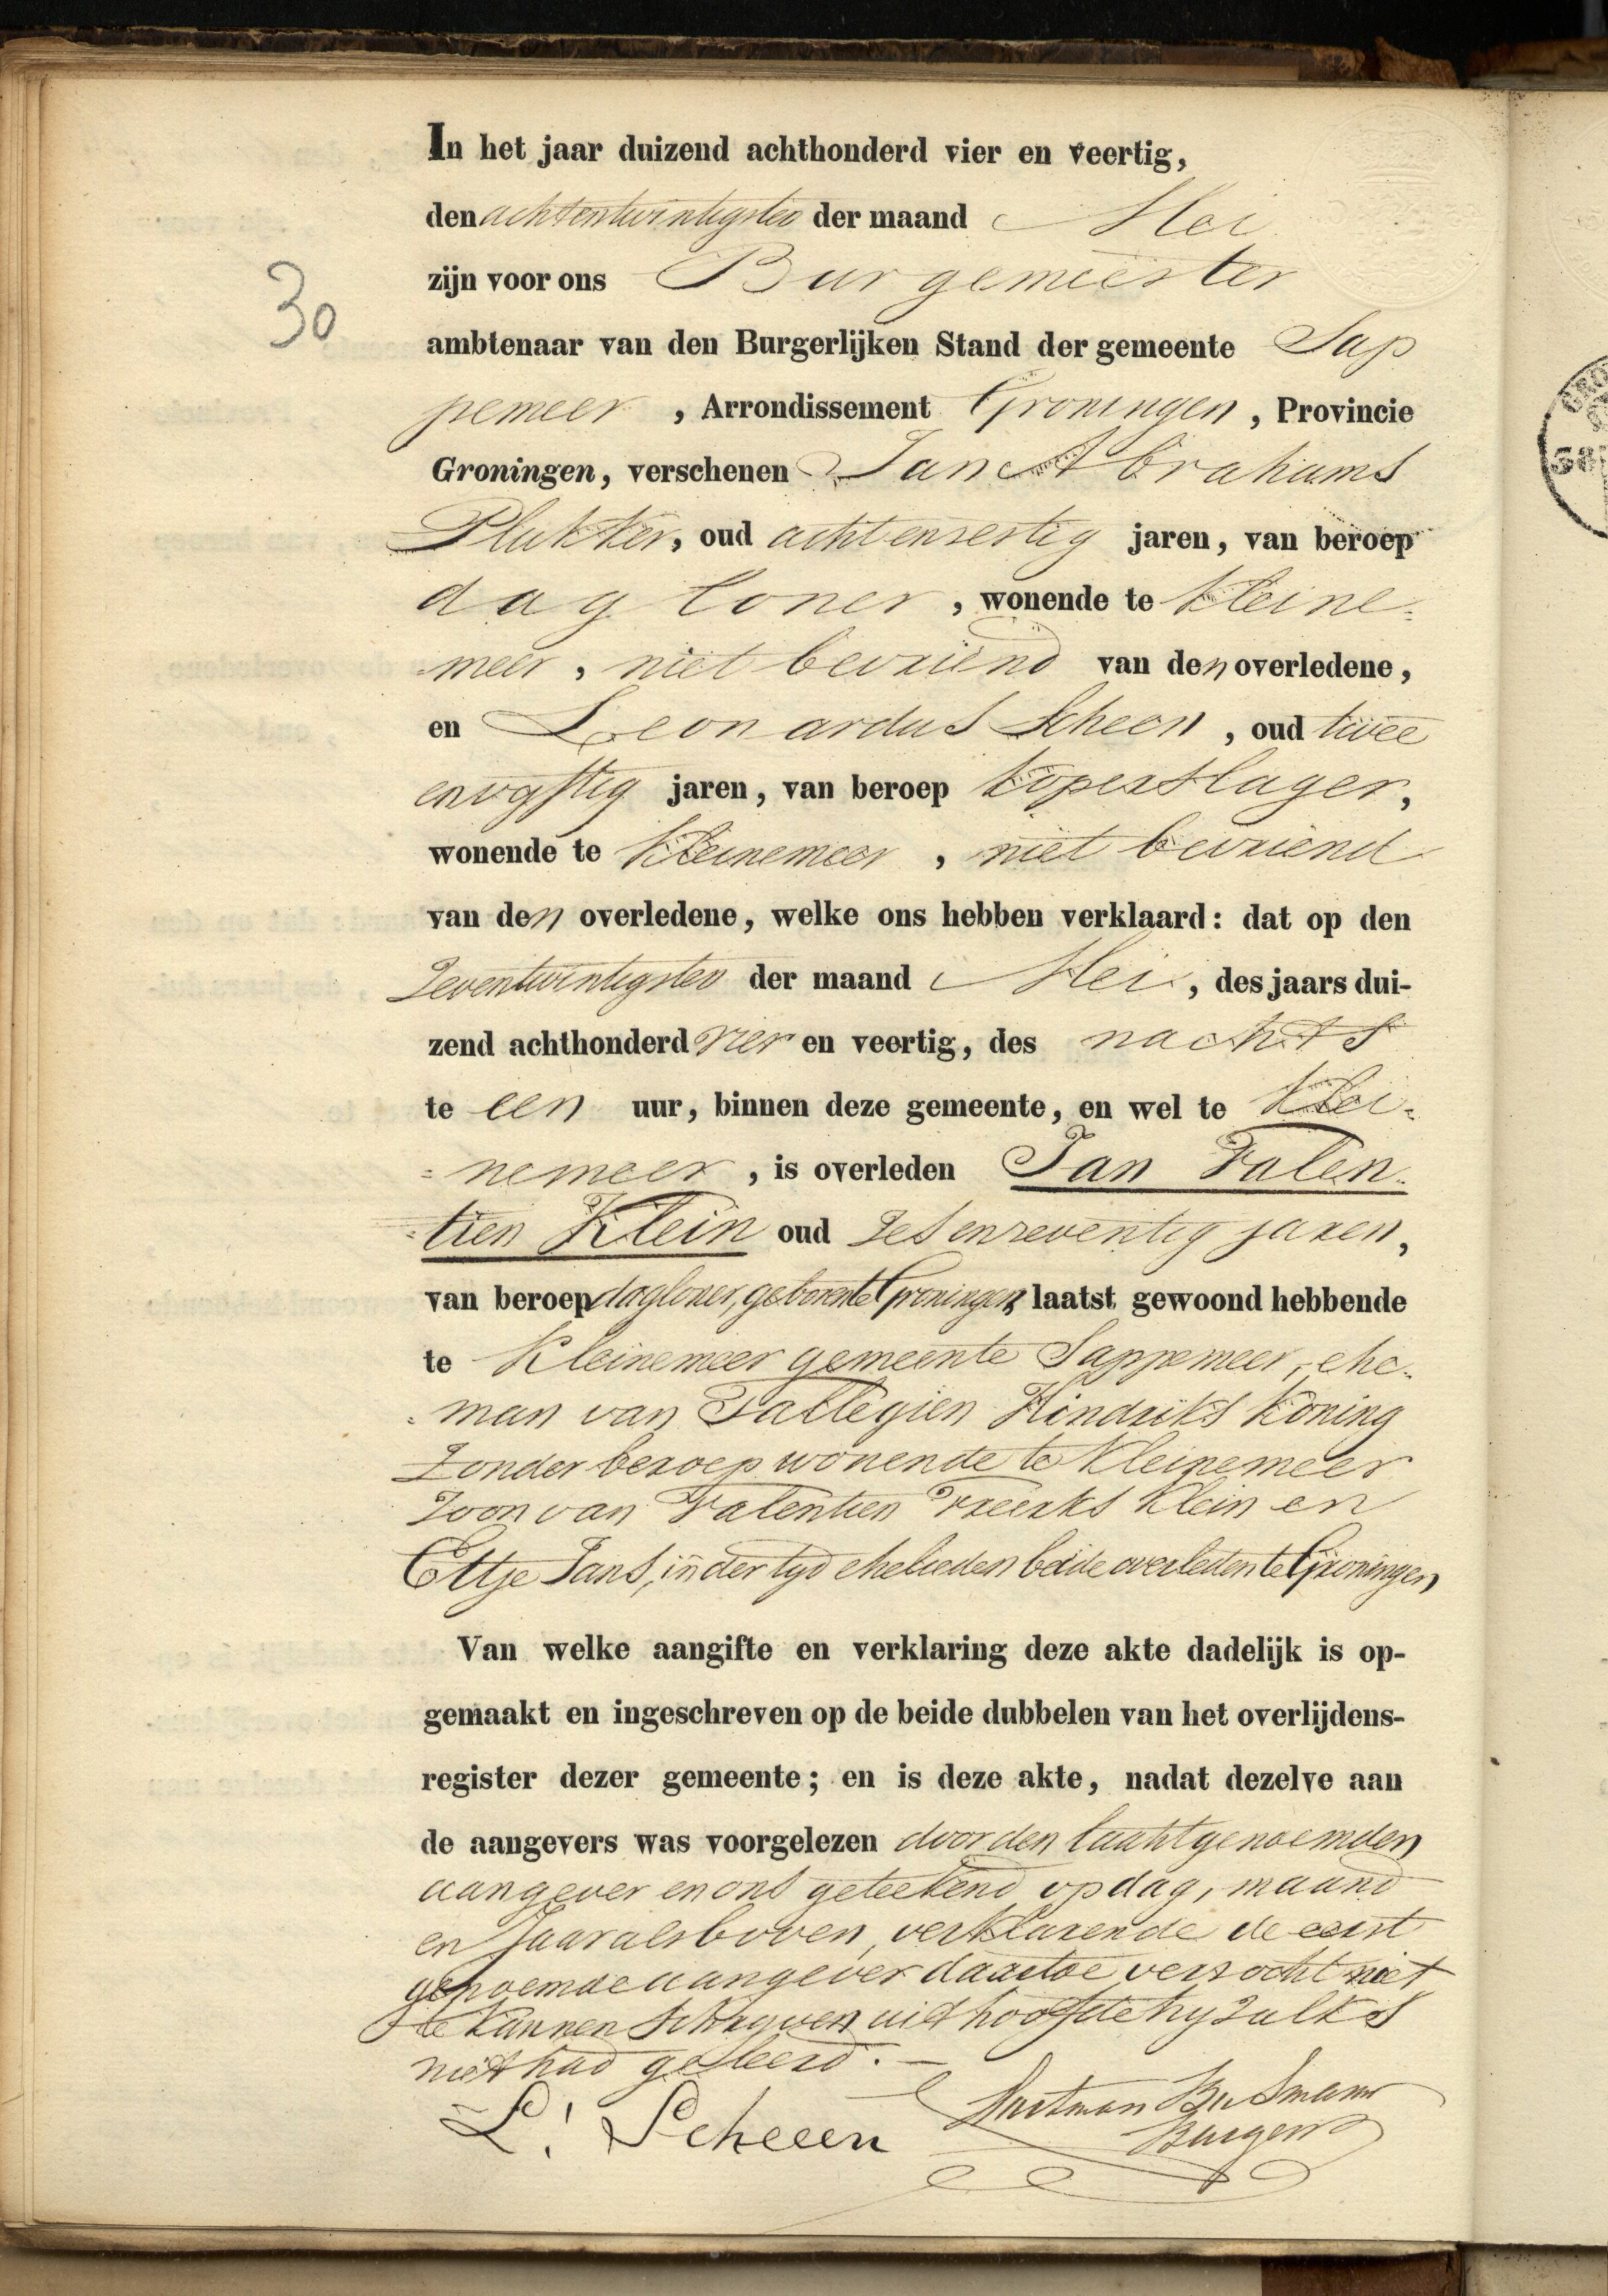 In het jaar duizend achthonderd vier en veertig,
den achtentwintigsten der maand Mei
zijn voor ons Burgemeester
30
ambtenaar van den Burgerlijken Stand der gemeente Sap
pemeer , Arrondissement Groningen , Provincie
Groningen, verschenen Jan Abrahams
Plukker, oud achtenzestig jaren, van beroep
dagloner , wonende te Kleine-
-meer , niet bevriend van den overledene,
en Leonardus Scheen , oud twee
envyftig jaren, van beroep koperslager,
wonende te Kleinemeer , niet bevriend
van den overledene, welke ons hebben verklaard: dat op den
Zeventwintigsten der maand Mei , des jaars dui-
zend achthonderd vier en veertig, des nachts
te een uur, binnen deze gemeente, en wel te Klei-
-nemeer , is overleden Jan Falen-
-tien Klein oud Zesenzeventig jaren,
van beroep dagloner, geboren te Groningen, laatst gewoond hebbende
te Kleinemeer gemeente Sappemeer, ehe-
-man van Tallegien Hindriks Koning
Zonder beroep wonende te Kleinemeer
Zoon van Falentien Freerks Klein en
Ettje Jans, in der tyd ehelieden beide overleden te Groningen
Van welke aangifte en verklaring deze akte dadelijk is op-
gemaakt en ingeschreven op de beide dubbelen van het overlijdens-
register dezer gemeente; en is deze akte, nadat dezelve aan
de aangevers was voorgelezen door den laatstgenoemden
aangever en ons geteekend op dag, maand
en Jaar als boven, verklarende de eerst
genoemde aangever daartoe verzocht niet
te kunnen schryven uit hoofde hy zulks
niet had geleerd. —
L. Scheen
Busmann
Burgem